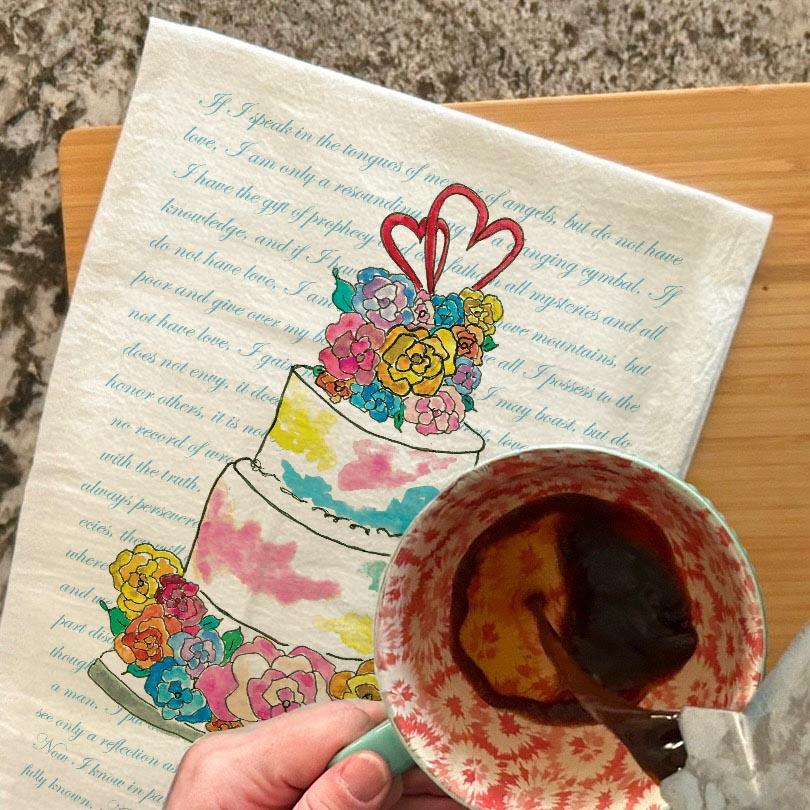 If I speak in the tongues of men or of angels, but do not have
love, I am only a resounding gong or a clanging cymbal. If
I have the gift of prophecy and can fathom all mysteries and all
knowledge, and if I have move mountains, but
do not have love, I am all I possess to the
poor and give over my b I may boast, but do
not have love, I gain t, love
does not envy, it does
honor others, it is not
no record of wro
with the truth.
always persevere
ecies, they will
where
and w
part dis
though
a man, I pu
see only a reflection as
Now, I know in pa
fully known.